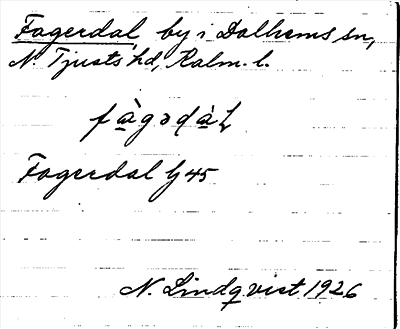 Fagerdal, by i Dalhems sn,
N. Tjusts hd, Kalm. l.
fàgədàL
Fagerdal G 45
N. Lindqvist 1926